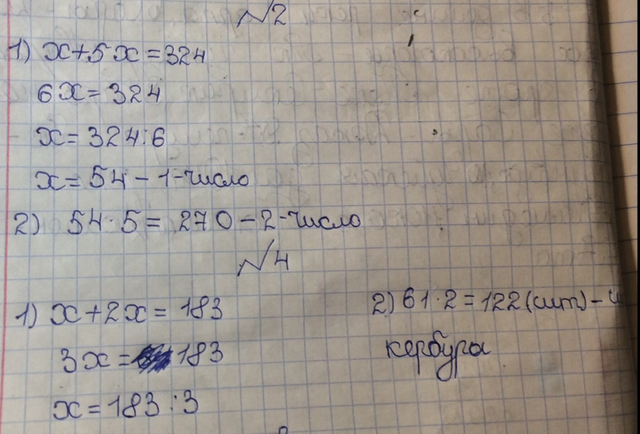 №2
1) x+5x=324
6x=324
x=324:6
x=54-1-число
2) 54·5=270-2-число
№4
1) x+2x=183
3x=183
x=183:3
2) 61·2=122(шт)-
кербура